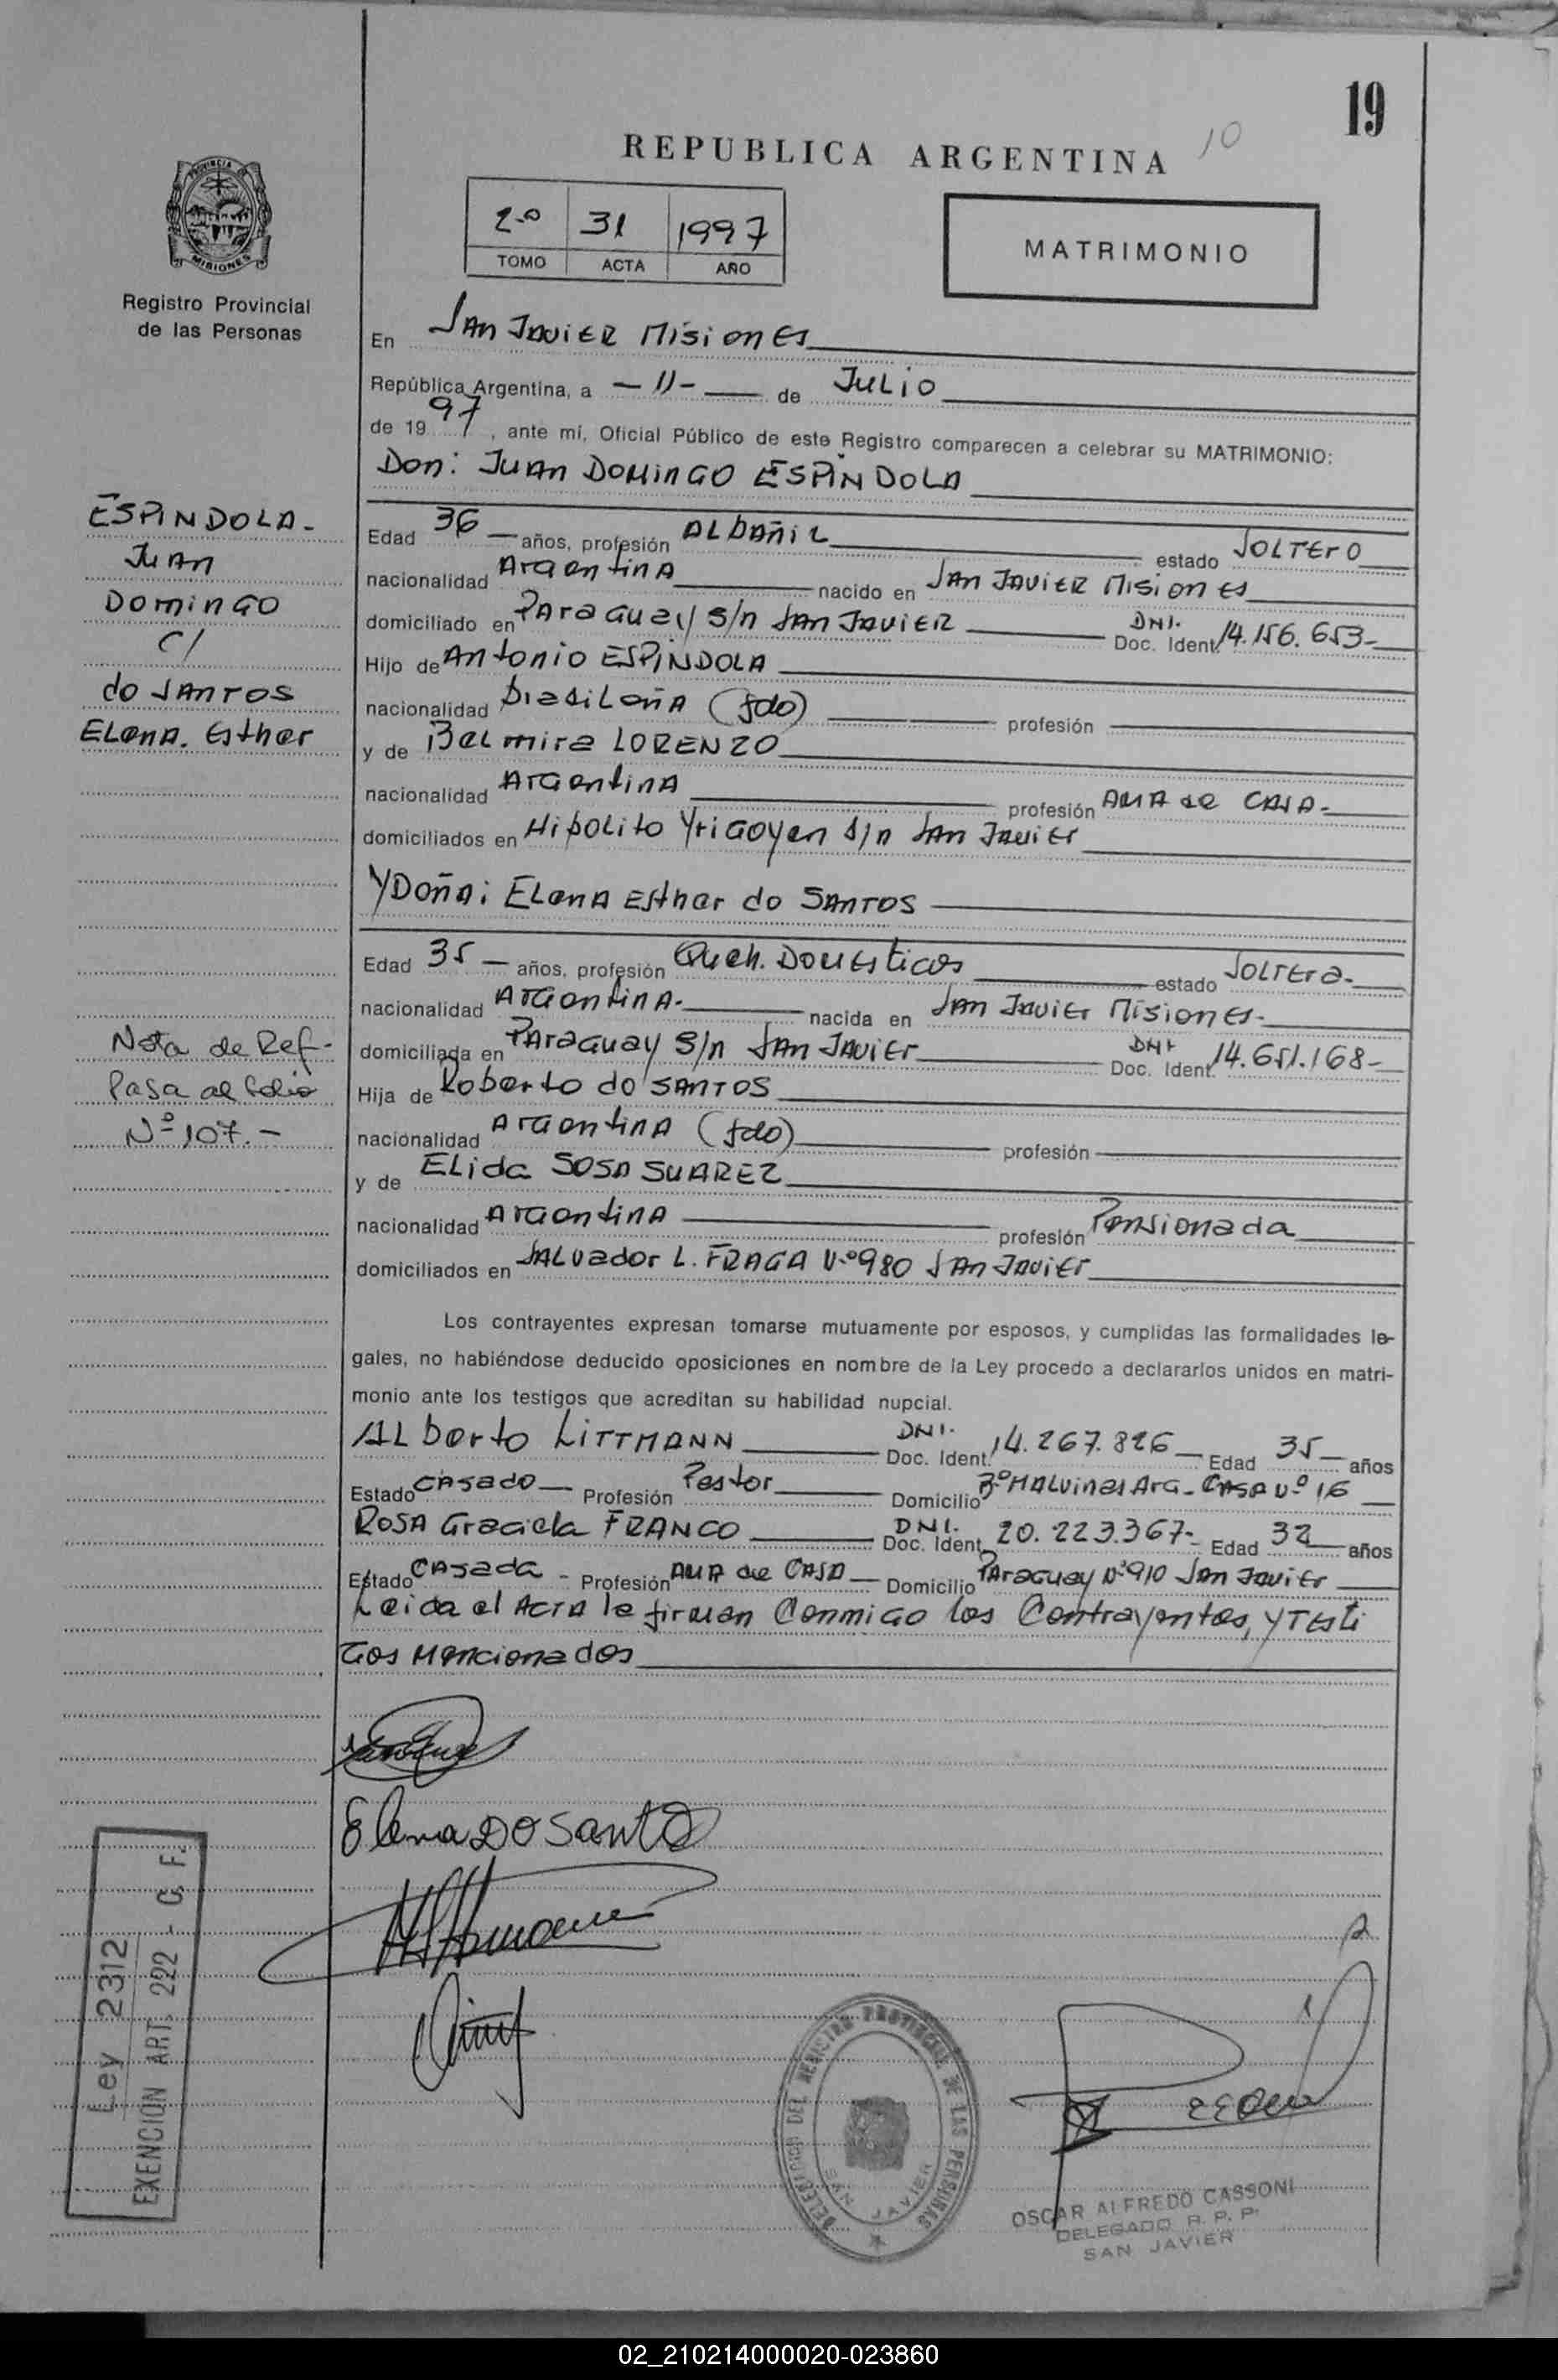 19
10
REPUBLICA ARGENTINA
PROVINCIA DE MISIONES
Registro Provincial
de las Personas
2º 31 1997
TOMO ACTA AÑO
MATRIMONIO
En San Javier Misiones
República Argentina, a - 11 - de Julio
de 19 97, ante mí, Oficial Público de este Registro comparecen a celebrar su MATRIMONIO:
Don: Juan Domingo ESPINDOLA
ESPINDOLA-
Juan
Domingo
c/
do SANTOS
Elena. Esther
Edad 36 años, profesión Albañil estado Soltero
nacionalidad Argentina nacido en San Javier Misiones
domiciliado en Paraguay s/n San Javier DNI. Doc. Ident. 14.156.653-
Hijo de Antonio ESPINDOLA
nacionalidad Brasileña (fdo) profesión
y de Belmira LORENZO
nacionalidad Argentina profesión Ama de Casa-
domiciliados en Hipolito Yrigoyen s/n San Javier
Y Doña: Elena Esther do SANTOS
Edad 35 - años, profesión Queh. Domesticos estado Soltera-
nacionalidad Argentina- nacida en San Javier Misiones-
Nota de Ref-
Pasa al folio
Nº 107.-
domiciliada en Paraguay s/n San Javier DNI Doc. Ident. 14.651.168-
Hija de Roberto do SANTOS
nacionalidad Argentina (fdo) profesión
y de Elida SOSA SUAREZ
nacionalidad Argentina profesión Pensionada
domiciliados en Salvador L. FRAGA Nº 980 San Javier
Los contrayentes expresan tomarse mutuamente por esposos, y cumplidas las formalidades le-
gales, no habiéndose deducido oposiciones en nombre de la Ley procedo a declararlos unidos en matri-
monio ante los testigos que acreditan su habilidad nupcial.
Alberto LITTMANN DNI. Doc. Ident. 14.267.826 Edad 35 años
Estado Casado Profesión Pastor Domicilio Bº Malvinas Arg- Casa Nº 16
Rosa Graciela FRANCO DNI. Doc. Ident. 20.223.367- Edad 32 años
Estado Casada - Profesión Ama de Casa Domicilio Paraguay Nº 910 San Javier
Leida el Acta la firman Conmigo los Contrayentes, y Testi
gos Mencionados
Elena DO Santo
Ley 2312
EXENCION ART. 222 - C. F.
DELEGACION DEL REGISTRO PROVINCIAL DE LAS PERSONAS
SAN JAVIER
OSCAR ALFREDO CASSONI
DELEGADO R. P. P.
SAN JAVIER
02_210214000020-023860